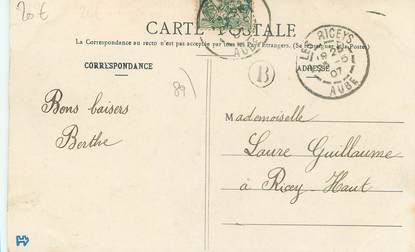 20 €
CARTE POSTALE
La Correspondance au recto n'est pas acceptée par tous les Pays Étrangers. (Se renseigner à la Poste)
CORRESPONDANCE
ADRESSE
B
LES RICEYS
AUBE
07
AUBE
89
Bons baisers
Berthe
Mademoiselle
Laure Guillaume
à Ricey-Haut